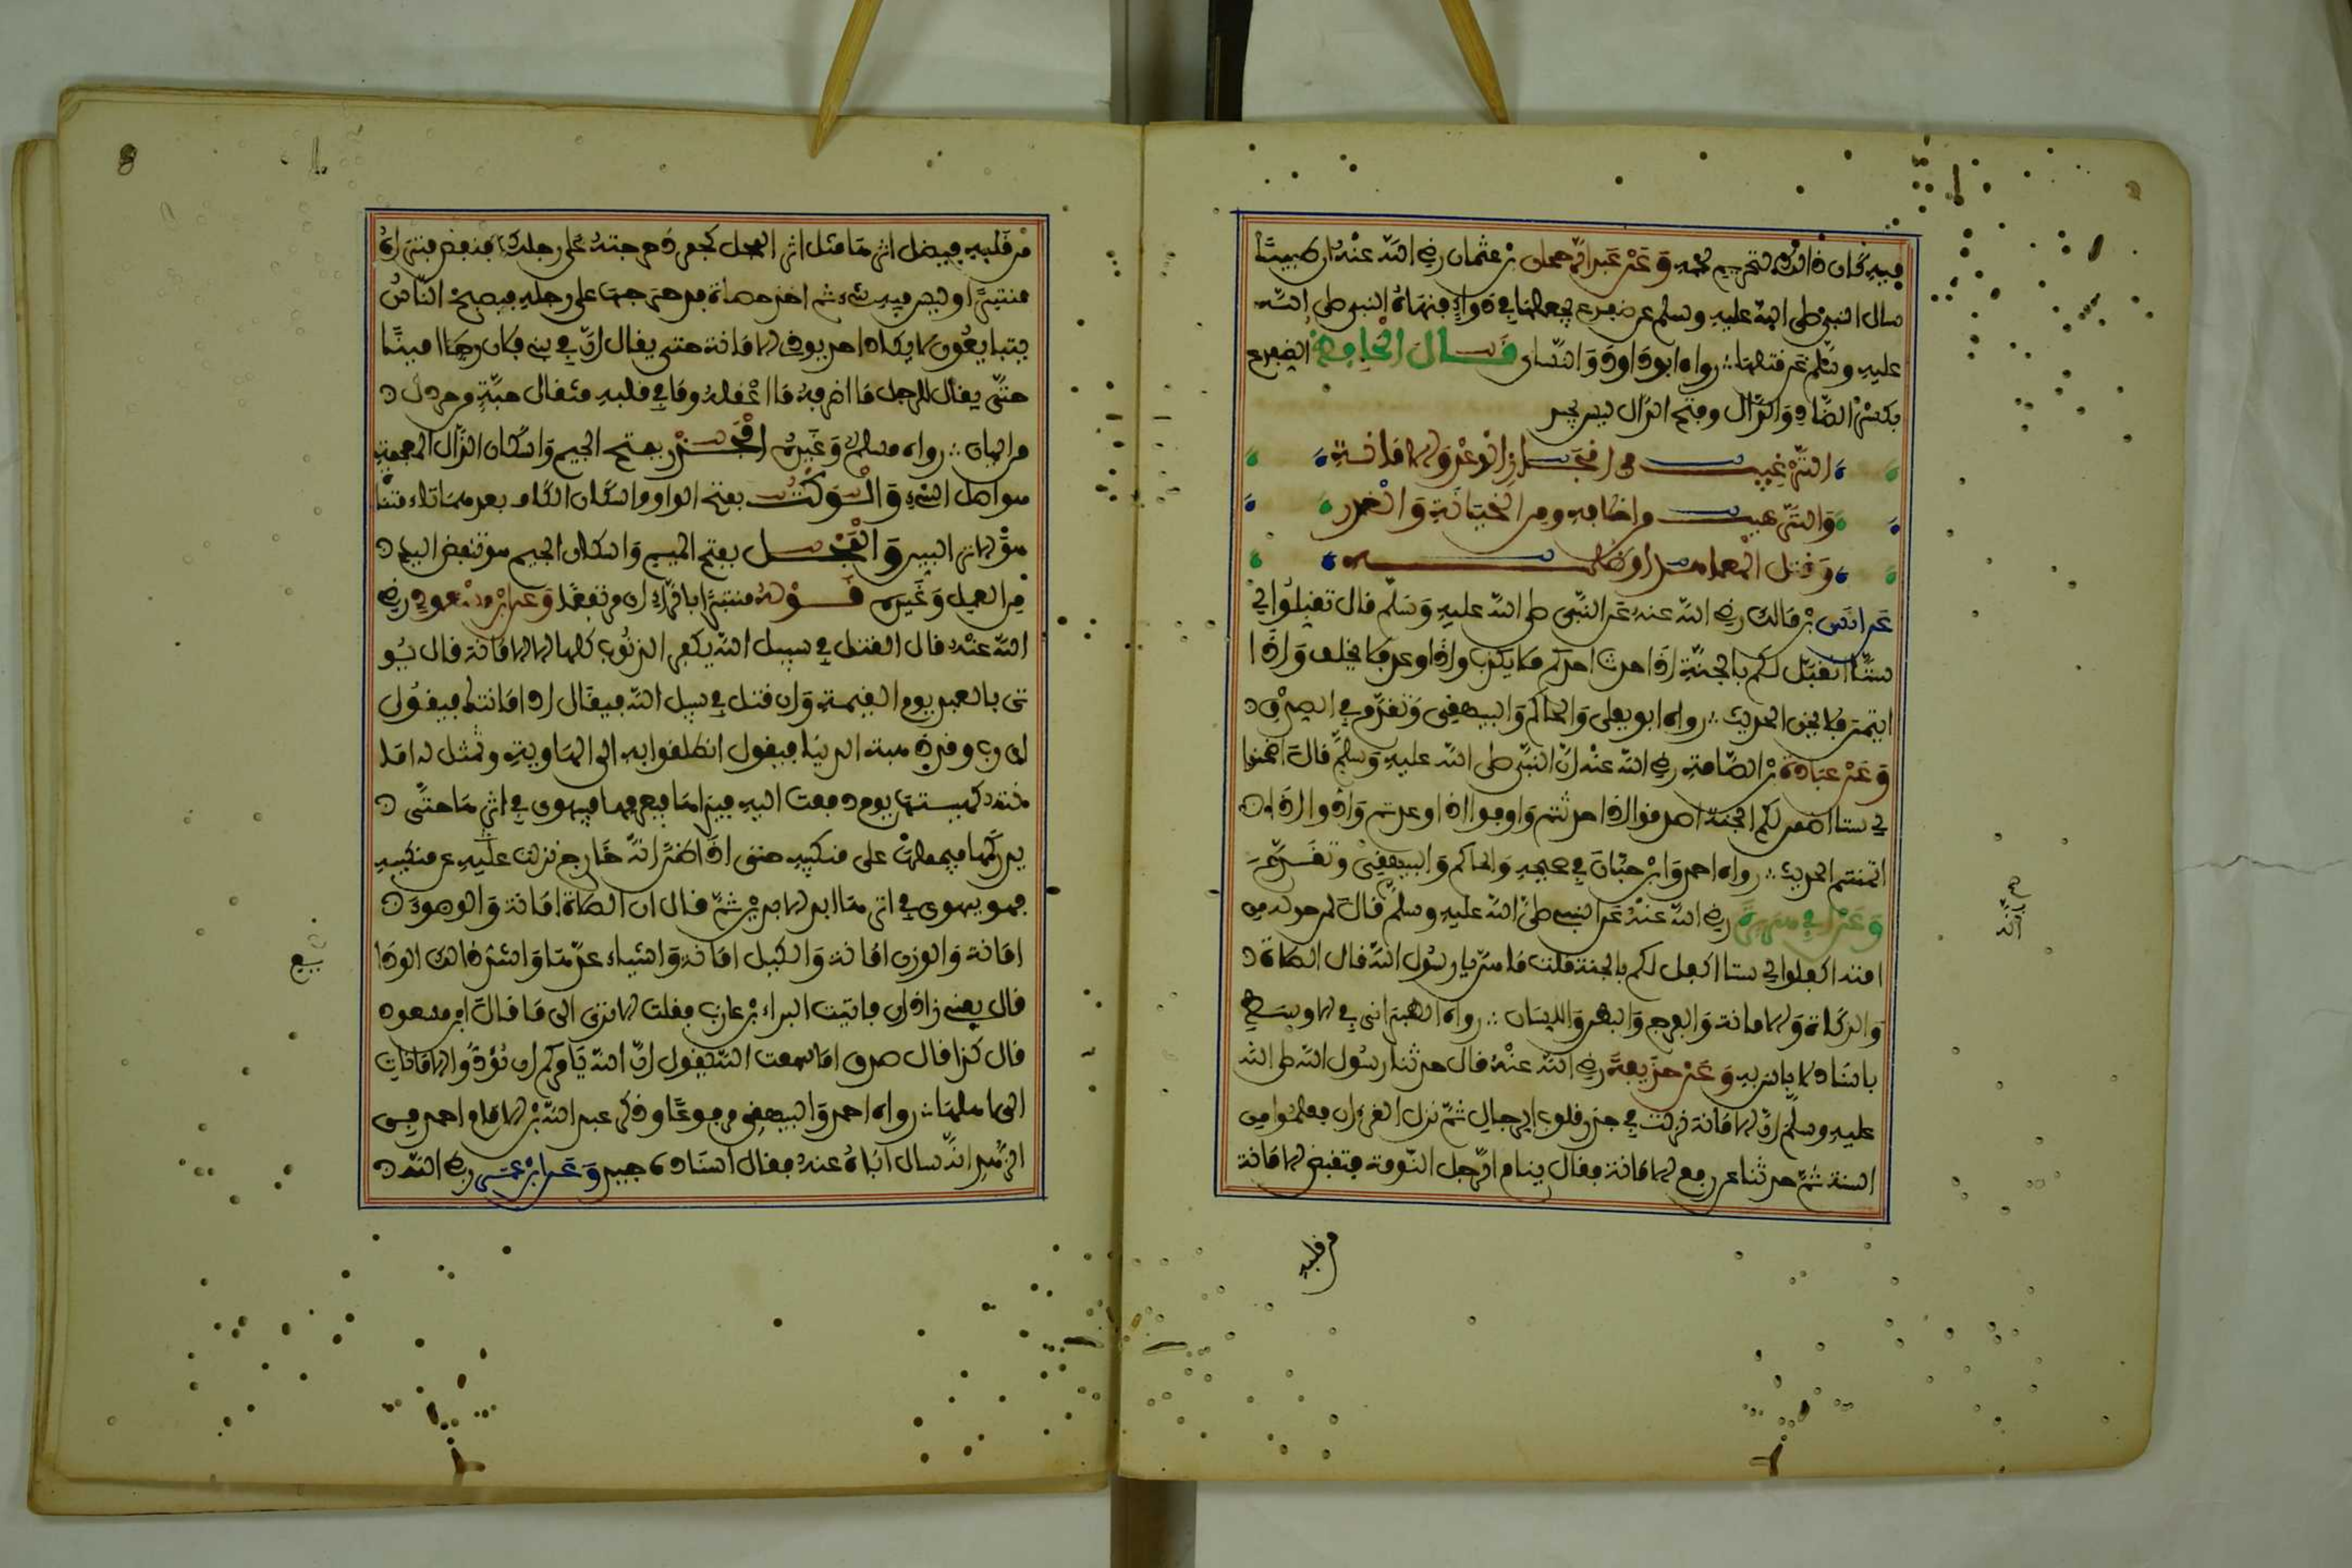 فيه كان ذالك لتحريم لحمه وَعَنْ عَبد الرّحمان بن عثمان رضي الله عنهُ ان طبيبًا
سال النبيّ صلى الله عليه وسلم عن ضفدع يجعلها في دواءٍ فنهاهُ النبي صلى الله
عليه وسَلّم عَن قتلها ∴ رواه ابو داوود وَالنّساءى قــال الْحَافِظُ الضفدع
بكسْر الضّاد وَالدَّال وفتح الدّال ليس بجيد
التّرْغيب فى انجــاز الوعْدِ وَالامَانــةِ
وَالتّرهيب من اخلافه ومن الخيَانَةِ وَالْغدر
وَقتل المعاهد او ظلمــه
عَن انَس بْن مَالك رضي الله عنهُ عَن النّبى صلى الله عليه وَسَلّم قال تقبلُوا لي
ستًّا اتقبّل لكم بالجنّةِ اذَا حدث احدكم فلا يكذب واذا وعد فلا يخلف وَاذَا
ايتمن فلا يخن الحديث ∴ رواه ابو يعلى وَالحاكم وَالبيهقى وَتقدَّم في الصدْق
وَعَنْ عبَادةَ بْن الصّامت رضي الله عنْهُ انّ النبّي صلى الله عليه وَسلّم قالَ اضمنوا
لي ستا اضمن لكم الجنة اصدقوا اذا حدثتم وَاوفوا اذا وعدتم وَادوا اذَا
ائتمنتم الحديث ∴ رواه احمد وَابْن حبّانَ في صحيحه وَالحاكم وَالبيهقيْ وَتقَــدّمَ
وَعَنْ أبي هريرةَ رضي الله عنهُ عَن النبي صلىَّ الله عليه وسلمّ قالَ لمن حوله من
امته اكفلوا لي ستا اكفل لكم بالجنة قلت مَا هنّ يا رسُول اللهِ قال الصلاة
وَالزكاة وَالامانة وَالفرج وَالبطن وَاللسَان ∴ رواه الطبرانى في الاوسَـط
باسنَاد لا باس به وَعَنْ حذَيفةَ رضي الله عنْهُ قال حدثنا رسُول الله صلى الله
عليه وسلّم انّ الامَانة نزلت في جذر قلوب الرجالِ ثمّ نزل القرءان فعلمُوا من
السنة ثمّ حدثنا عن رفع الامَانة فقال ينام الرّجل النّومة فتقبض الامَانة
من قلبهِ
من قَلبهِ فيضل اثرهَا مثل اثر المجل كجمر دحرجتهُ عَلى رجلك فنفض فتراهُ
منتبرًا وليس فيه شيء ثم اخذ حصاة فدحرجها على رجله فيصبح النّاسُ
يتبايعُون لا يكاد احد يودي الامَانة حتى يقال انّ في بني فلان رجلا امينًا
حتَّى يقال للرجل مَا اظرفهُ مَا اعْقلهُ ومَا في قلبه مثقال حبّةٍ من خردل
من ايمان ∴ رواه مسلم وَغَيرُه الجَــذْر بفتح الجيم وَاسكان الذَّال المعجمة
هو اصل الشي وَالــوَكتُ بفتح الواو واسكان الكاف بعدها تاء مثنّا
هوّ الاثر اليسير وَالْمَجْــل بفتح الميم وَاسكان الجيم هو تنفض اليد
من العمل وَغَيره قَــوْلهُ منتبرًا بالرَّاءِ اى مرتفعًا وَعَن ابْن مسْعودٍ رضي
الله عَنْهُ قال القتل في سبيل الله يكفر الذنُوب كلها الا الامَانة قال يُو
تى بالعبد يوم القيمة وَان قتل في سبيل الله فيقَال اد امَانتك فيقُول
اى رب وقد ذهبت الدنيَا فيقول انطلقوا به الى الهَاوية وتُمثل له امَا
نته كهيئتها يوم دفعت اليه فيراهَا فيعرفها فيهوى في اثرهَا حتّى
يدركهَا فيحملها على منكبيه حتى اذَا ظنّ انهُ خَارج زلت عن منكبيه
فهو يهوى في اثرهَا ابد الابدينْ ثمّ قال ان الصلاة امَانة وَالوضوء
امَانة وَالوزن امَانة وَالكيل امَانة وَاشياء عدّهَا وَاشدّ ذالك الودَا
يع
قال يعني زاذان فاتيت البراء بْن عازب فقلت الا ترى الى مَا قَالَ ابن مسعود
قال كذا قال صدق امَا سمعت الله يقول انّ الله يَامركم ان تُؤدُّوا الامَانات
الى اهلهَا ∴ رواه احمد وَالبيهقى موقوفًا وذكر عبد الله بْن الامَام احمد في
الزهْدِ انَّه سال ابَاهُ عنه فقال اسنَاده جيد وَعَن ابْن عمَر رضي الله